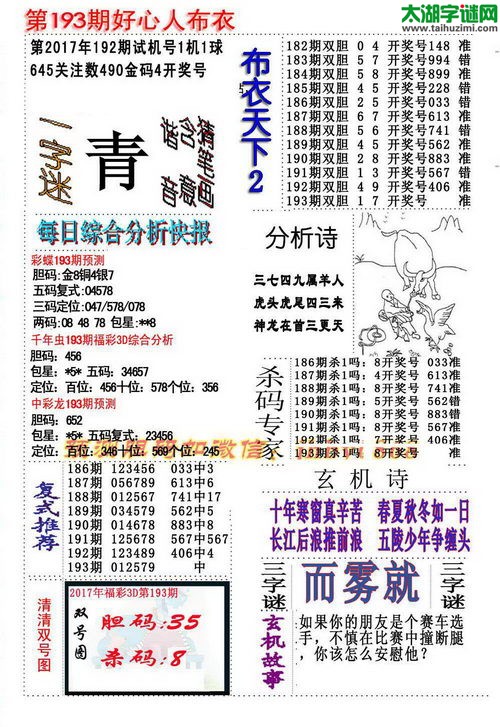 第193期好心人布衣
太湖字谜网
www.taihuzimi.com
第2017年192期试机号1机1球
645关注数490金码4开奖号
一字迷
青
猜笔画
含意
猜音
每日综合分析快报
彩蝶193期预测
胆码:金8铜4银7
五码复式:04578
三码定位:047/578/078
两码:08 48 78 包星:**8
千年虫193期福彩3D综合分析
胆码: 456
包星: *5* 五码: 34657
定位: 百位: 456十位: 578个位: 356
中彩龙193期预测
胆码: 652
包星: *5* 五码复式: 23456
定位: 百位: 346十位: 569个位: 245
布衣天下2
182期双胆 0 4 开奖号148 准
183期双胆 5 7 开奖号994 错
184期双胆 5 7 开奖号899 错
185期双胆 4 5 开奖号228 错
186期双胆 2 5 开奖号033 错
187期双胆 0 1 开奖号613 准
188期双胆 5 6 开奖号741 错
189期双胆 4 5 开奖号562 准
190期双胆 2 8 开奖号883 准
191期双胆 1 3 开奖号567 错
192期双胆 4 9 开奖号406 准
193期双胆 1 7 开奖号 准
分析诗
三七四九属羊人
虎头虎尾四三来
神龙在首三更天
杀码专家
186期杀1吗: 8开奖号 033准
187期杀1吗: 4开奖号 613准
188期杀1吗: 8开奖号 741准
189期杀1吗: 5开奖号 562错
190期杀1吗: 8开奖号 883错
191期杀1吗: 8开奖号 567准
192期杀1吗: 7开奖号 406准
193期杀1吗: 8开奖号 准
复式推荐
186期 123456 033中3
187期 056789 613中6
188期 012567 741中17
189期 034579 562中5
190期 014678 883中8
191期 125678 567中567
192期 123489 406中4
193期 012579 中
玄机诗
十年寒窗真辛苦 春夏秋冬如一日
长江后浪推前浪 五陵少年争缠头
清清双号图
2017年福彩3D第193期
双号图
胆码:35
杀码:8
三字谜
而雾就
三字谜
玄机故事
如果你的朋友是个赛车选
手,不慎在比赛中撞断腿
,你该怎么安慰他?